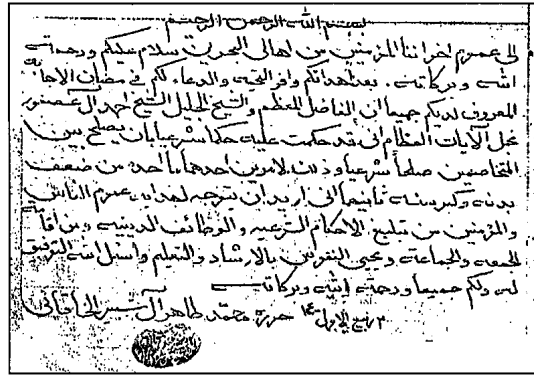 بسم الله الرحمن الرحيم
الى عموم اخواننا المؤمنين من اهالي البحرين سلام عليكم ورحمة
الله وبركاته . بعد اهدائكم وافر التحية والدعاء لكم في مضان الاجابة
المعروف لديكم جميعا ان الفاضل المعظم والشيخ الجليل الشيخ احمد ال عصفور
نجل الآيات العظام اني قد حكمت عليه حكما شرعيا بان يصلح بين
المتخاصمين صلحاً شرعيا وذلك لامرين احدهما ما احذه من ضعف
بدنه وكبر سنه ثانيهما اني اريد ان يتوجه لهداية عموم الناس
والمؤمنين من تبليغ الاحكام الشرعيه والوظائف الدينيه ومن اقامة
الجمعه والجماعة ويحيى النفوس بالارشاد والتعليم واسئل الله التوفيق
له ولكم جميعا ورحمة الله وبركاته
ربيع الاول حرره محمد طاهر آل شبير الخاقاني